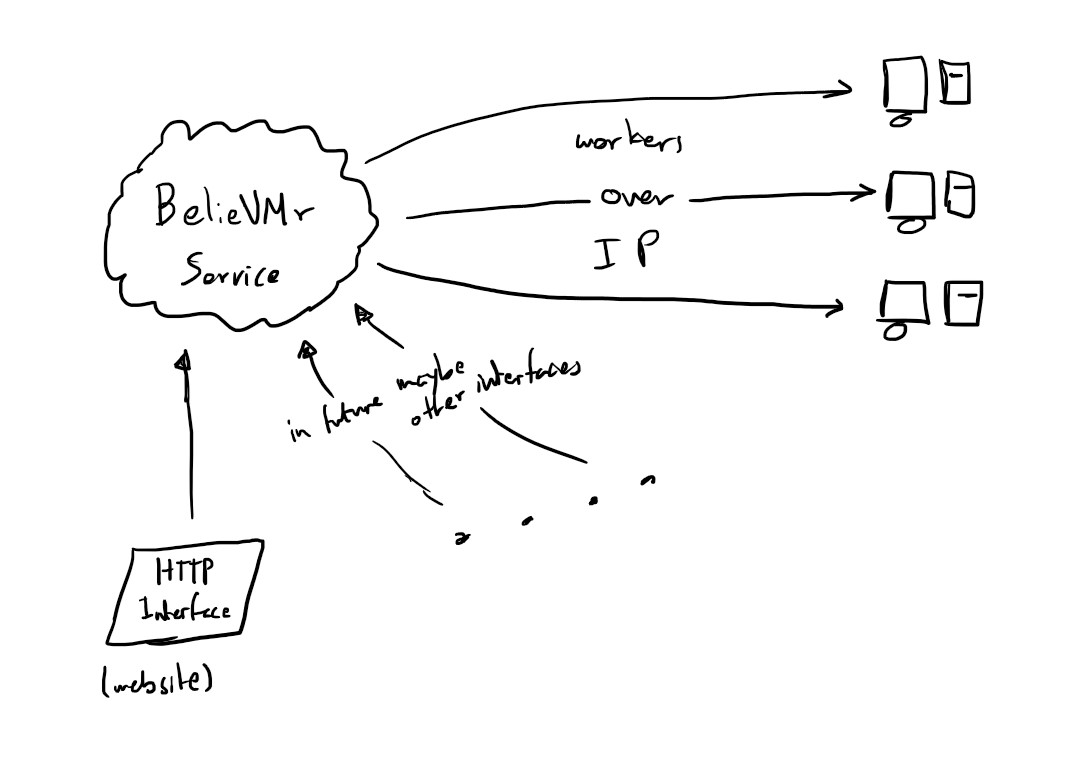 BelieVMr
Service
workers
over
IP
in future maybe
other interfaces
HTTP
Interface
(website)